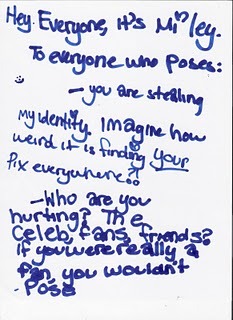 Hey. Everyone, it's Miley.
To everyone who Poses:
- you are stealing
my identity. Imagine how
weird it is finding your
pix everywhere?!
- Who are you
hurting? The
celeb, fans, friends?
if you were really a
fan, you wouldn't
- Pose